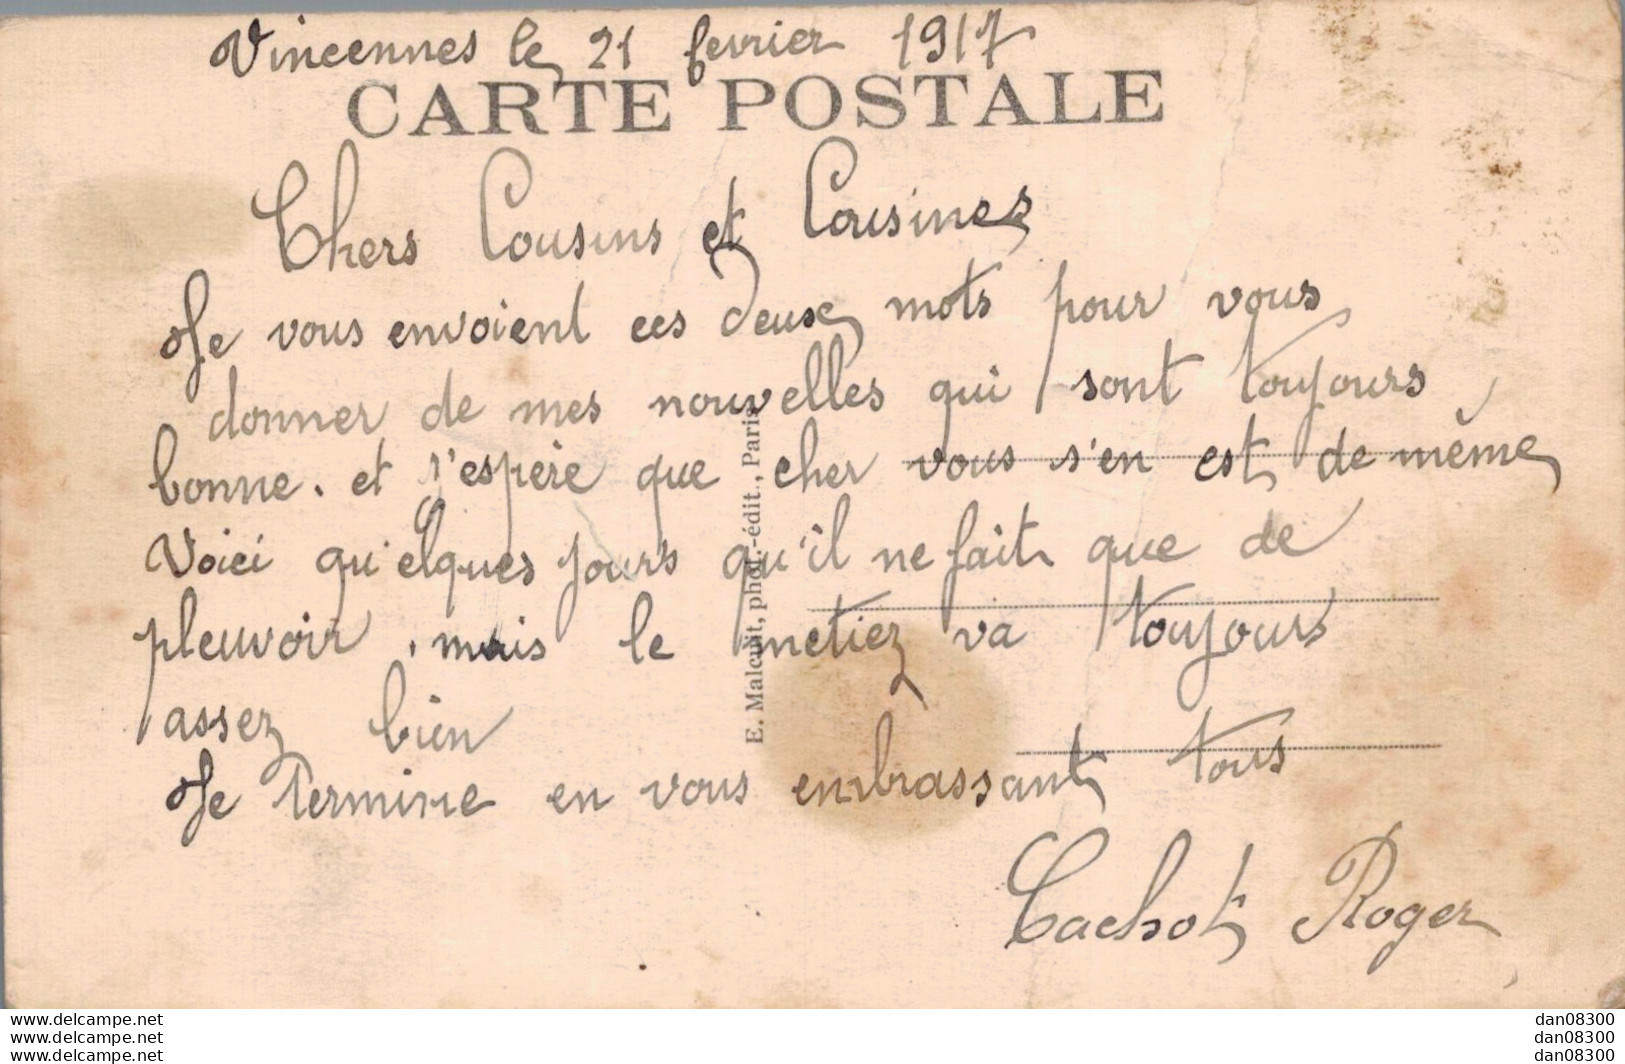 Vincennes le 21 fevrier 1917
CARTE POSTALE
Chers Cousins et Cousines
Je vous envoient ces deux mots pour vous
donner de mes nouvelles qui sont toujours
bonne. et j'espère que cher vous s'en est de même
Voici qu'elques jours qu'il ne fait que de
pleuvoir. mais le metiez va toujours
assez bien
Je termine en vous embrassant tous
Cachot Roger
E. Malcuit, phot.-édit., Paris
www.delcampe.net
www.delcampe.net
www.delcampe.net
dan08300
dan08300
dan08300